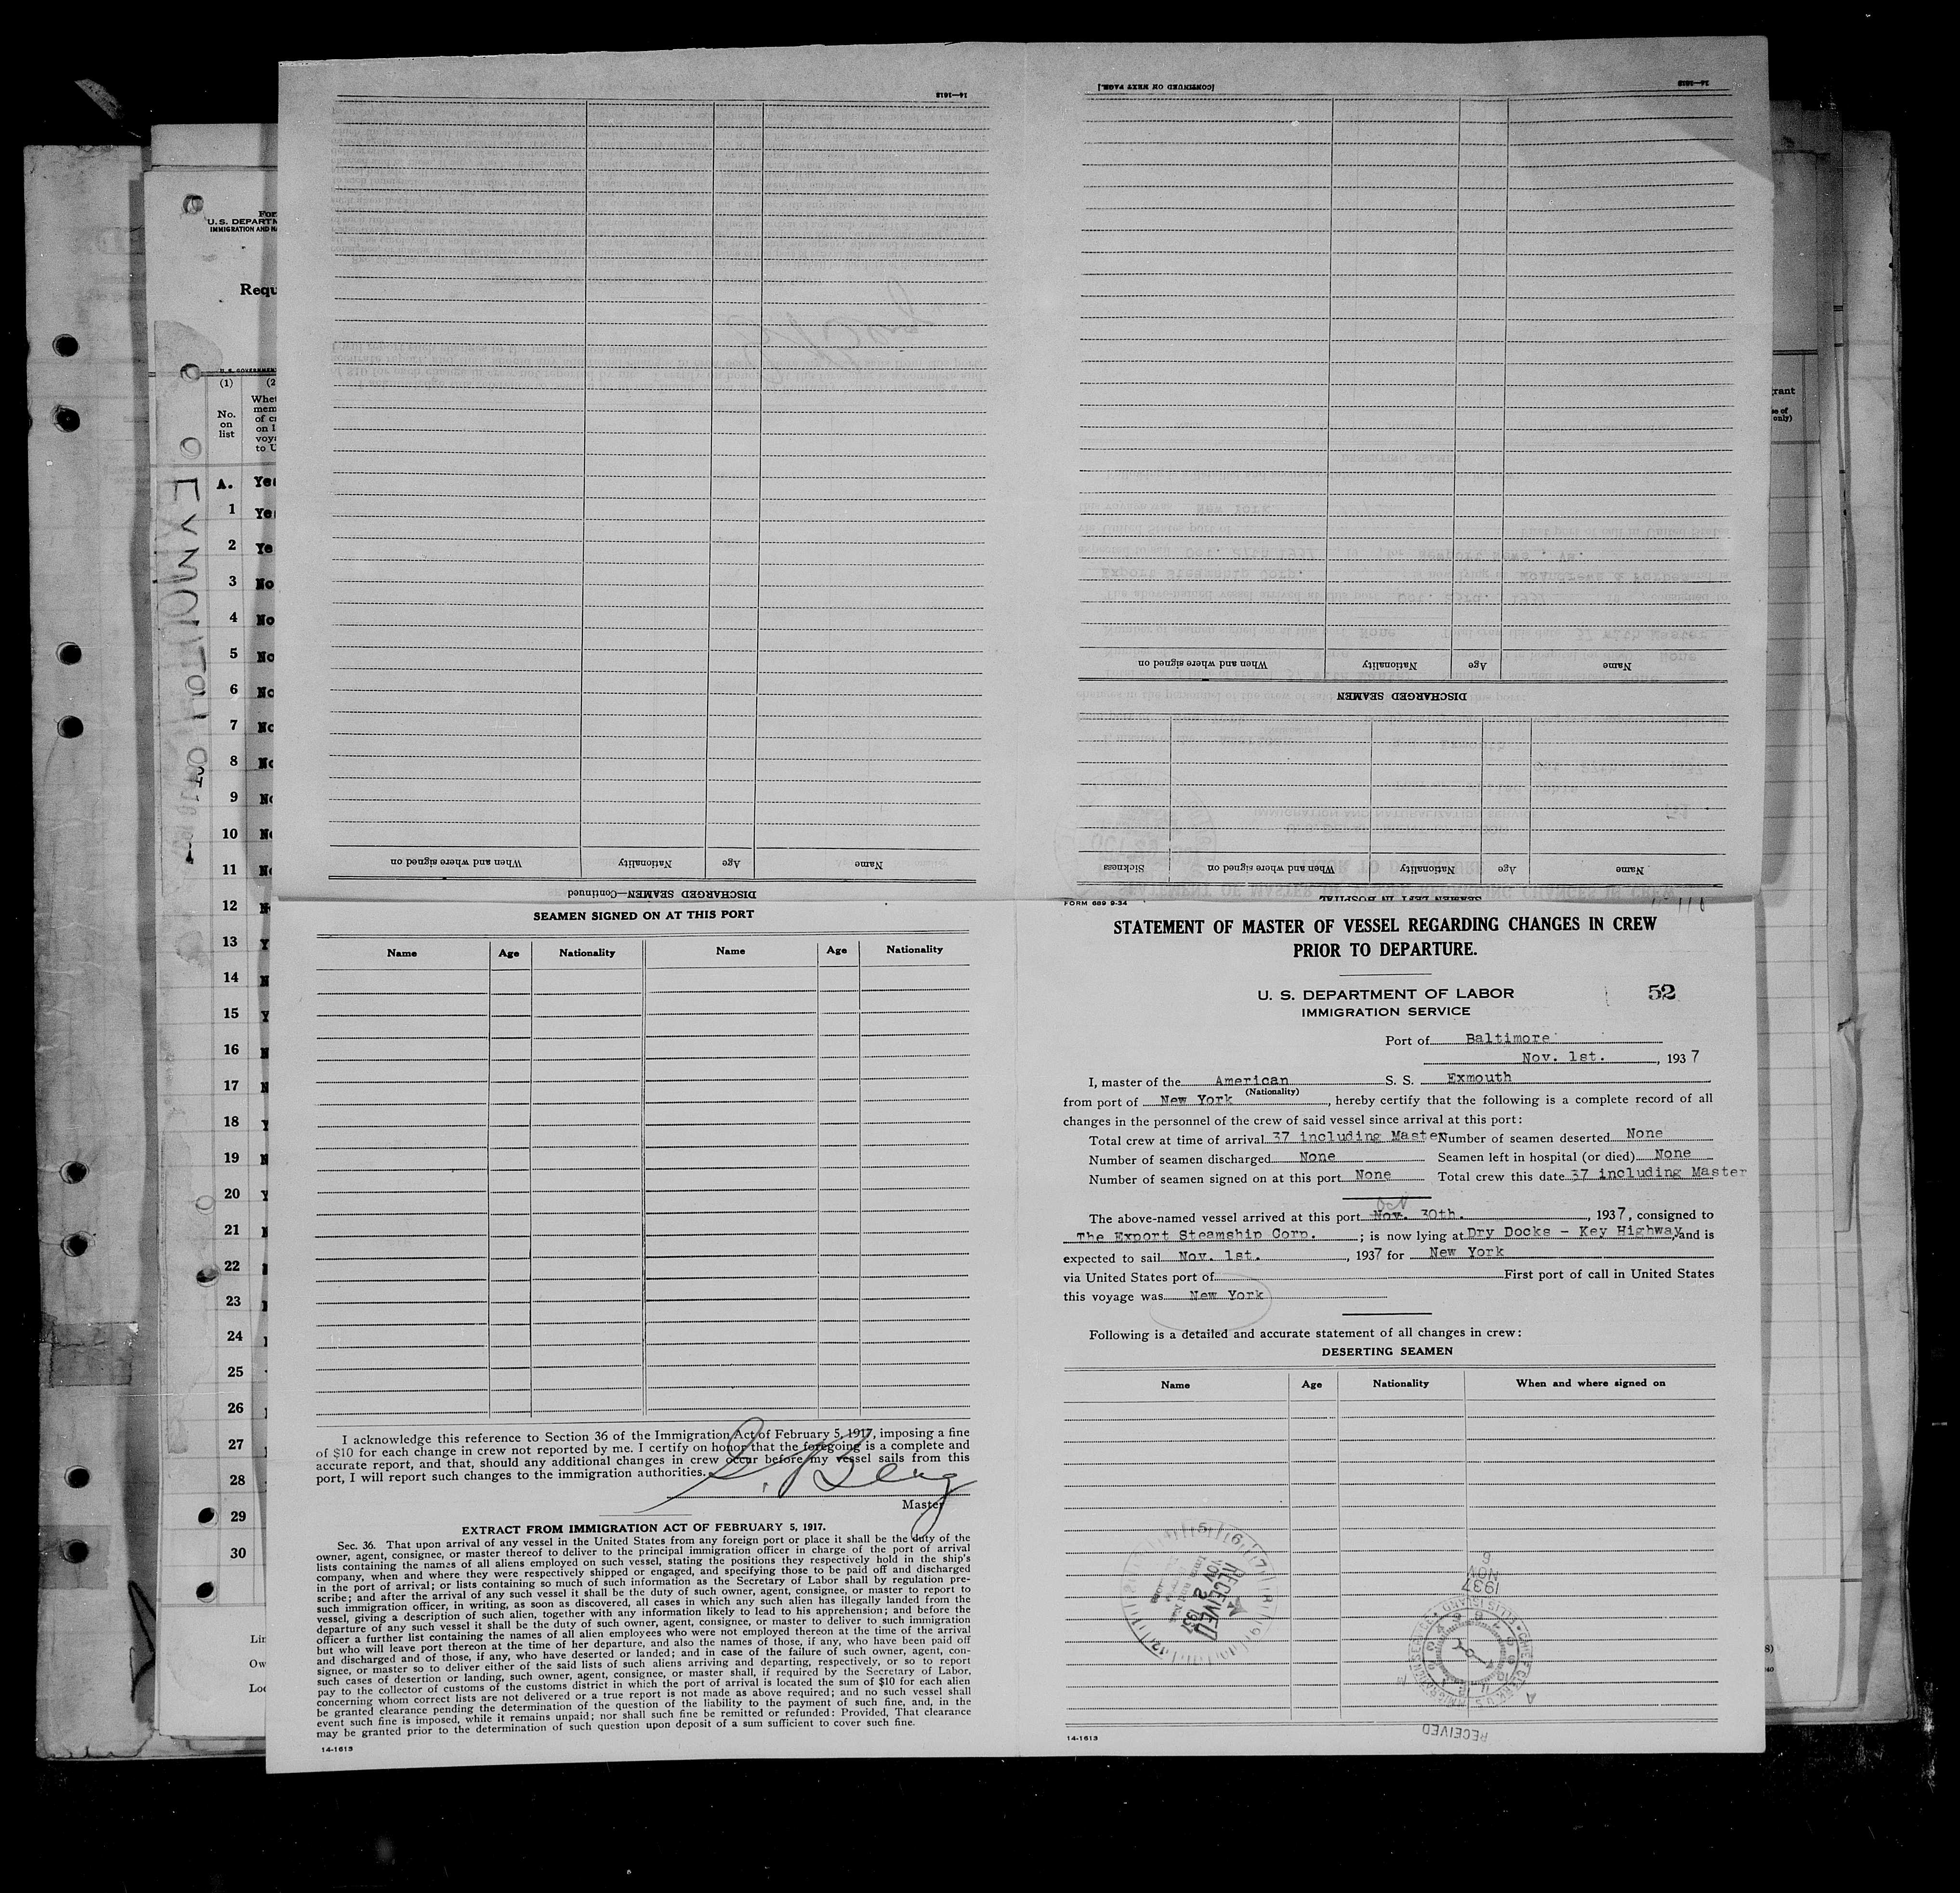 FORM 689 9-34
STATEMENT OF MASTER OF VESSEL REGARDING CHANGES IN CREW
PRIOR TO DEPARTURE.
U. S. DEPARTMENT OF LABOR
52
IMMIGRATION SERVICE
Port of Baltimore
Nov. 1st., 1937
I, master of the American S. S. Exmouth
(Nationality)
from port of New York, hereby certify that the following is a complete record of all
changes in the personnel of the crew of said vessel since arrival at this port:
Total crew at time of arrival 37 including Master Number of seamen deserted None
Number of seamen discharged None Seamen left in hospital (or died) None
Number of seamen signed on at this port None Total crew this date 37 including Master
The above-named vessel arrived at this port Nov. 30th., 1937, consigned to
The Export Steamship Corp. ; is now lying at Dry Docks - Key Highway, and is
expected to sail Nov. 1st., 1937 for New York
via United States port of First port of call in United States
this voyage was New York
Following is a detailed and accurate statement of all changes in crew:
DESERTING SEAMEN
Name Age Nationality When and where signed on
RECEIVED
NOV 2 1937
1937
NOV
RECEIVED
14-1613
SEAMEN SIGNED ON AT THIS PORT
Name Age Nationality Name Age Nationality
I acknowledge this reference to Section 36 of the Immigration Act of February 5, 1917, imposing a fine
of $10 for each change in crew not reported by me. I certify on honor that the foregoing is a complete and
accurate report, and that, should any additional changes in crew occur before my vessel sails from this
port, I will report such changes to the immigration authorities.
Master
EXTRACT FROM IMMIGRATION ACT OF FEBRUARY 5, 1917.
Sec. 36. That upon arrival of any vessel in the United States from any foreign port or place it shall be the duty of the
owner, agent, consignee, or master thereof to deliver to the principal immigration officer in charge of the port of arrival
lists containing the names of all aliens employed on such vessel, stating the positions they respectively hold in the ship's
company, when and where they were respectively shipped or engaged, and specifying those to be paid off and discharged
in the port of arrival; or lists containing so much of such information as the Secretary of Labor shall by regulation pre-
scribe; and after the arrival of any such vessel it shall be the duty of such owner, agent, consignee, or master to report to
such immigration officer, in writing, as soon as discovered, all cases in which any such alien has illegally landed from the
vessel, giving a description of such alien, together with any information likely to lead to his apprehension; and before the
departure of any such vessel it shall be the duty of such owner, agent, consignee, or master to deliver to such immigration
officer a further list containing the names of all alien employees who were not employed thereon at the time of the arrival
but who will leave port thereon at the time of her departure, and also the names of those, if any, who have been paid off
and discharged and of those, if any, who have deserted or landed; and in case of the failure of such owner, agent, con-
signee, or master so to deliver either of the said lists of such aliens arriving and departing, respectively, or so to report
such cases of desertion or landing, such owner, agent, consignee, or master shall, if required by the Secretary of Labor,
pay to the collector of customs of the customs district in which the port of arrival is located the sum of $10 for each alien
concerning whom correct lists are not delivered or a true report is not made as above required; and no such vessel shall
be granted clearance pending the determination of the question of the liability to the payment of such fine, and, in the
event such fine is imposed, while it remains unpaid; nor shall such fine be remitted or refunded: Provided, That clearance
may be granted prior to the determination of such question upon deposit of a sum sufficient to cover such fine.
14-1613
SEAMEN LEFT IN HOSPITAL
Name Age Nationality When and where signed on Sickness
DISCHARGED SEAMEN
Name Age Nationality When and where signed on
[CONTINUED ON NEXT PAGE.]
14-1613
DISCHARGED SEAMEN—Continued
Name Age Nationality When and where signed on
14-1613
U. S. DEPART
Requ
(1)
No.
on
list
A.
1
2
3 No
4 No
5 No
6 No
7
8
9
10
11
12
13
14
15
16
17
18
19
20
21
22
23
24
25
26
27
28
29
30